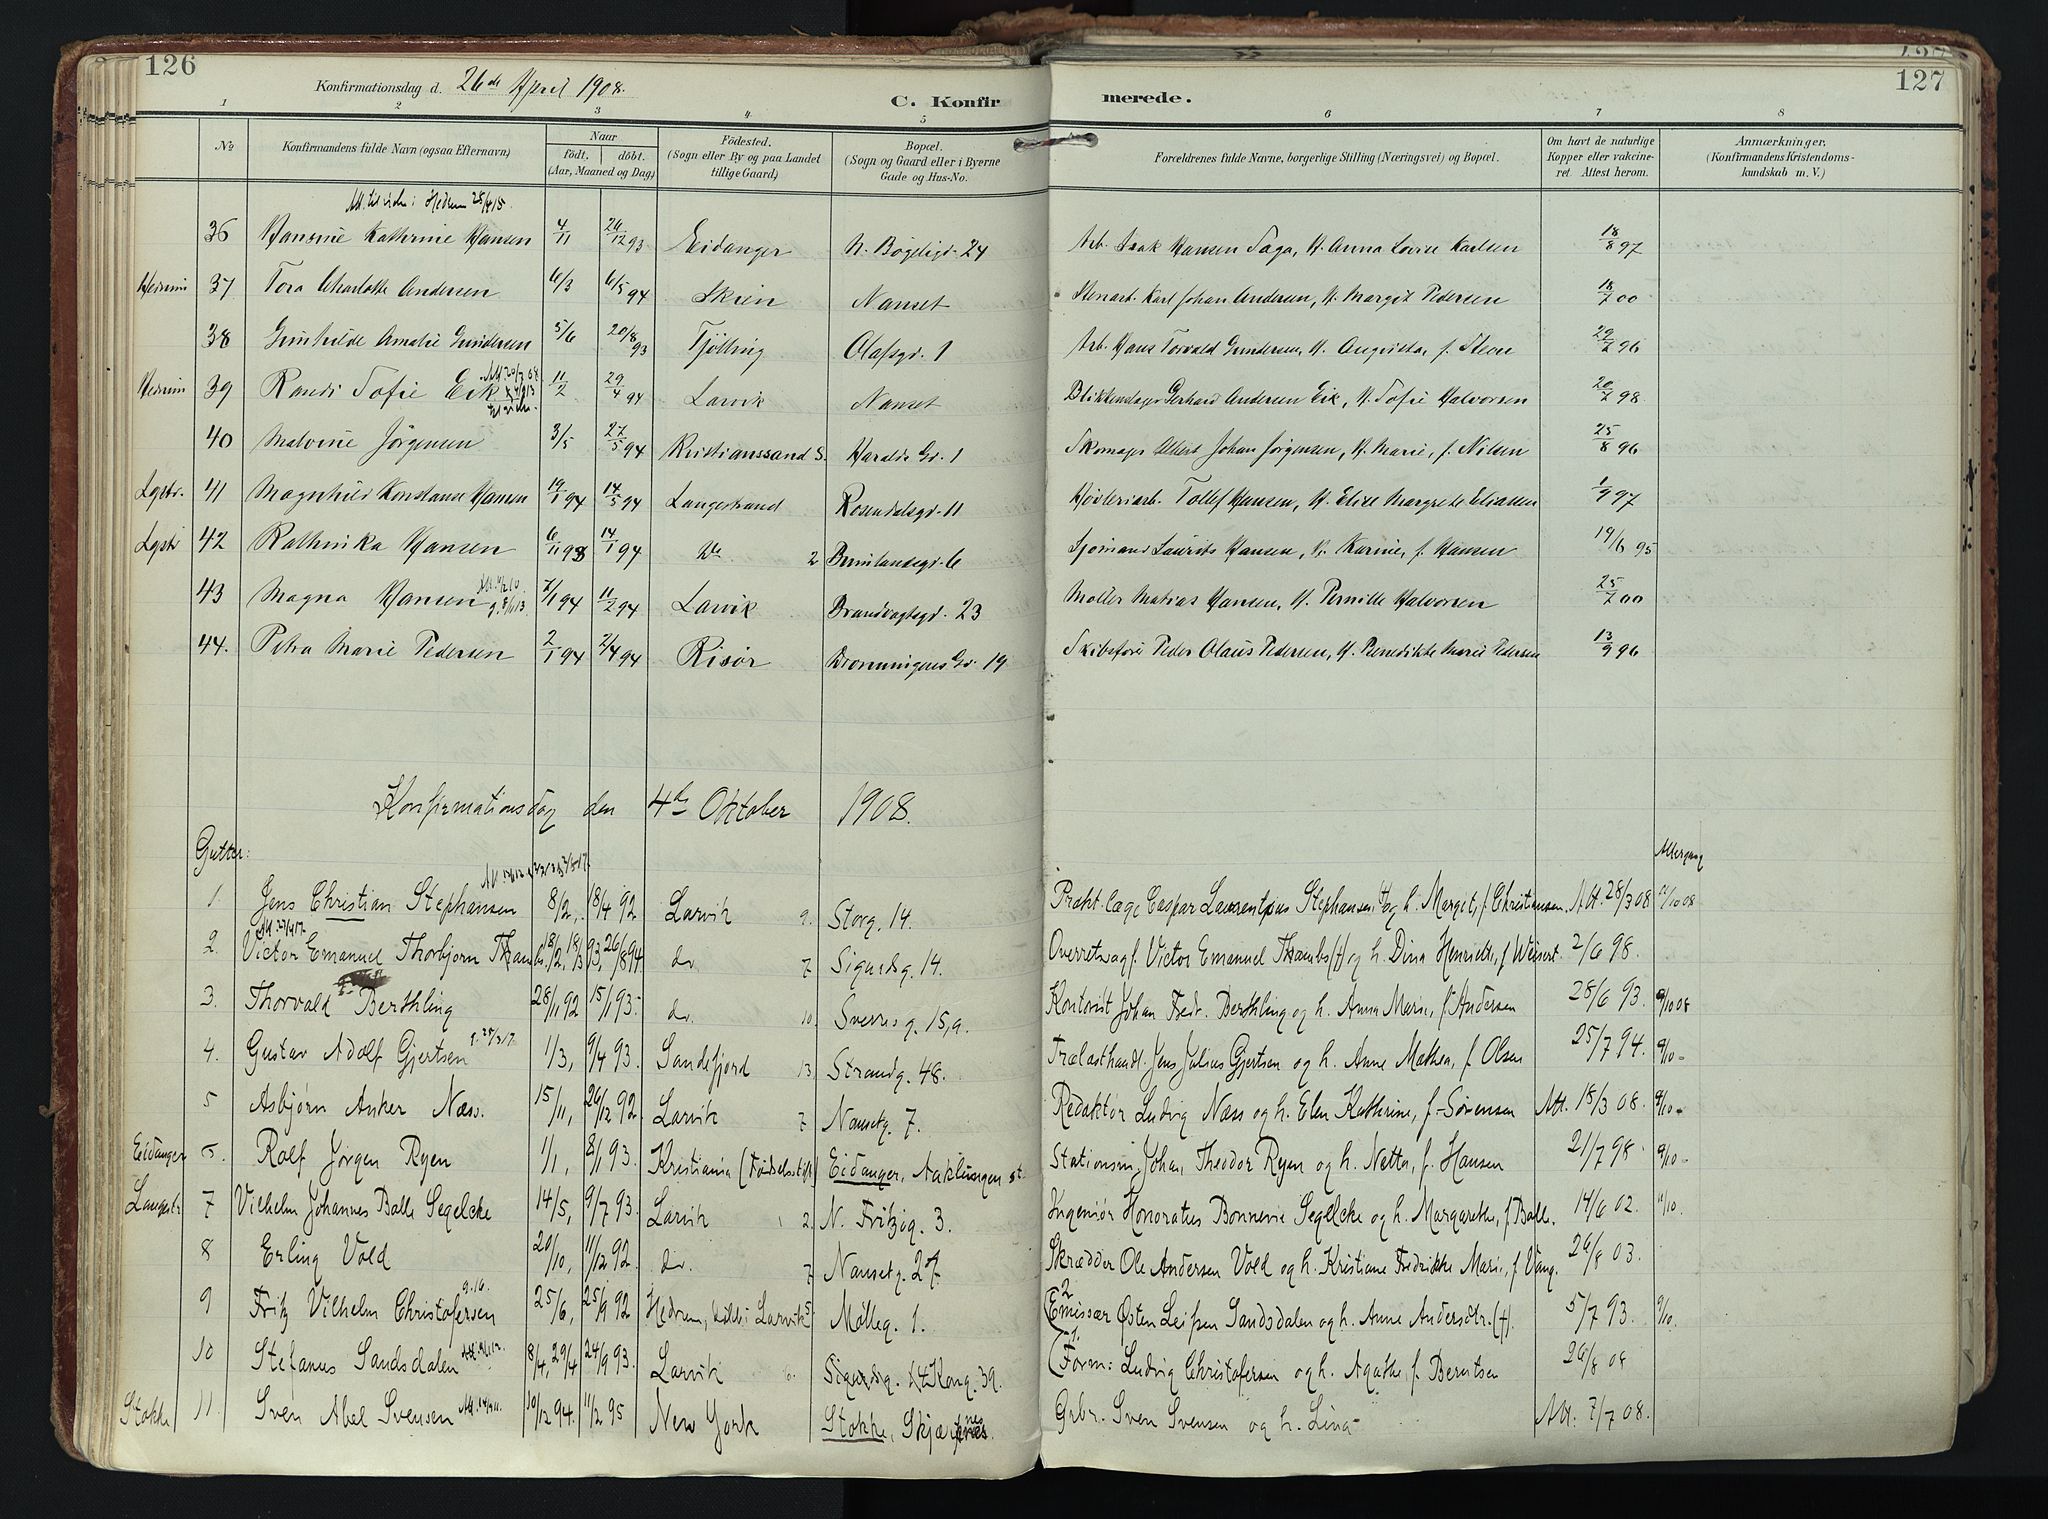 126
Konfirmationsdag d. 26de April 1908.
C. Konfirmerede.
127
1 2 3 4 5 6 7 8
No
Konfirmandens fulde Navn (ogsaa Efternavn)
Naar
födt. döbt.
(Aar, Maaned og Dag)
Födested.
(Sogn eller By og paa Landet tillige Gaard)
Bopæl.
(Sogn og Gaard eller i Byerne Gade og Hus-No.
Forældrenes fulde Navne, borgerlige Stilling (Næringsvei) og Bopæl.
Om havt de naturlige Kopper eller vakcineret. Attest herom.
Anmærkninger.
(Konfirmandens Kristendomskundskab m. V.)
Hedrum 28/4 15.
36 Hansine Kathrine Hansen 4/11 26/12 93 Eidanger N. Bögeligd. 24 Arb. Isak Hansen Saga, H. Anna Lovise Karlsen 18/8 97
Hedrum 37 Tora Charlotte Andersen 6/3 6/5 94 Skien Nanset Stenarb. Karl Johan Andersen, H. Margit Pedersen 18/7 00
38 Gunhilde Amalie Gundersen 5/6 20/8 93 Tjölling Olafsgd. 1 Arb. Hans Torvald Gundersen, H. Augusta, f. Steen 29/7 96
Hedrum 39 Randi Sofie Eik 11/2 29/4 94 Larvik Nanset Blikkenslager Gerhard Andersen Eik, H. Sofie Halvorsen 20/7 98
40 Malvine Jörgensen 3/5 27/5 94 Kristianssand S. Haralds Gd. 1 Skomager Albert Johan Jörgensen, H. Marie, f. Nilsen 25/8 96
Lgstr. 41 Magnhild Konstanse Hansen 19/1 94 14/5 94 Langestrand Rosendalsgd. 11 Hövleriarb. Tollef Hansen, H. Elise Margrete Eliassen 1/9 97
Lgstr 42 Rathvika Hansen 6/11 93 14/1 94 do 2 Brunlandsgd. 6 Sjömand Laurits Hansen, H. Karine, f. Hansen 19/6 95
43 Magna Hansen 7/1 94 11/2 94 Larvik Brandvagtsgd. 23 Möller Matias Hansen, H. Pernille Halvorsen 25/7 00
44. Petra Marie Pedersen 2/1 94 2/4 94 Risör Dronningens Gd. 19 Skibsförer Peder Olaus Pedersen, H. Benedikte Marie Pedersen 13/9 96
Konfirmationsdag den 4de Oktober 1908.
Gutter:
Altergang
1. Jens Christian Stephansen 8/2, 18/4 92 Larvik 9. Storg. 14. Prakt. læge Caspar Laurentius Stephansen og h. Margit, f. Christensen. Att. 28/3 08 11/10 08
2. Victor Emanuel Thorbjørn Thambs. 18/2, 18/3 93, 26/8 94 do. 7 Sigurdsg. 14. Overretssagf. Victor Emanuel Thambs (†) og h. Dina Henriette, f. Weisert 2/6 98.
3. Thorvald Berthling 28/11 92 15/1 93. do. 10. Sverresg. 15,a. Kontorist Johan Fredr. Berthling og h. Anna Marie, f. Andersen 28/6 93. 9/10 08
4. Gustav Adolf Gjertsen 1/3, 9/4 93. Sandefjord 13. Strandg. 48. Trælasthandl. Jens Julius Gjertsen og h. Anne Mathea, f. Olsen 25/7 94. 9/10 -
5 Asbjørn Anker Næss. 15/11, 26/12 92. Larvik 7 Nansetg. 7. Redaktör Ludvig Næss og h. Elen Kathrine, f. Sörensen Att. 18/3 08. 9/10 -
Eidanger 6. Rolf Jörgen Ryen 1/1, 8/1 93. Kristiania (Födselsstift.) Eidanger, Aaklungen st. Stationsm. Johan Theodor Ryen og h. Netta, f. Hansen 21/7 98. 9/10 -
Langestr. 7 Vilhelm Johannes Balle Segelcke 14/5, 9/7 93. Larvik 2. N. Fritzög. 3. Ingeniör Honoratus Bonnevie Segelcke og h. Margarethe, f. Balle. 14/6 02. 11/10.
8 Erling Vold 20/10, 11/12 92. do. 7 Nansetg. 27. Skrædder Ole Andersen Vold og h. Kristiane Fredrikke Marie, f. Vang. 26/8 03.
9 Fritz Vilhelm Christofersen 25/6, 25/9 92 Hedrum, Larvik 5. Mölleg. 1. (2 Emissær Østen Leifsen Sandsdalen og h. Anne Andersdtr. (†). 5/7 93. 9/10.
10 Stefanus Sandsdalen 8/4, 29/4 24/9 93. Larvik 6. Sigurdsg. Kong. 39. (1. Form: Ludvig Christofersen og h. Agathe, f. Berntsen 26/8 08
Stokke 11. Sven Abel Svensen 10/12 94. 11/2 95 New York Stokke, Skjærsnes. Grbr. Sven Svensen og h. Lina- Att. 7/7 08.